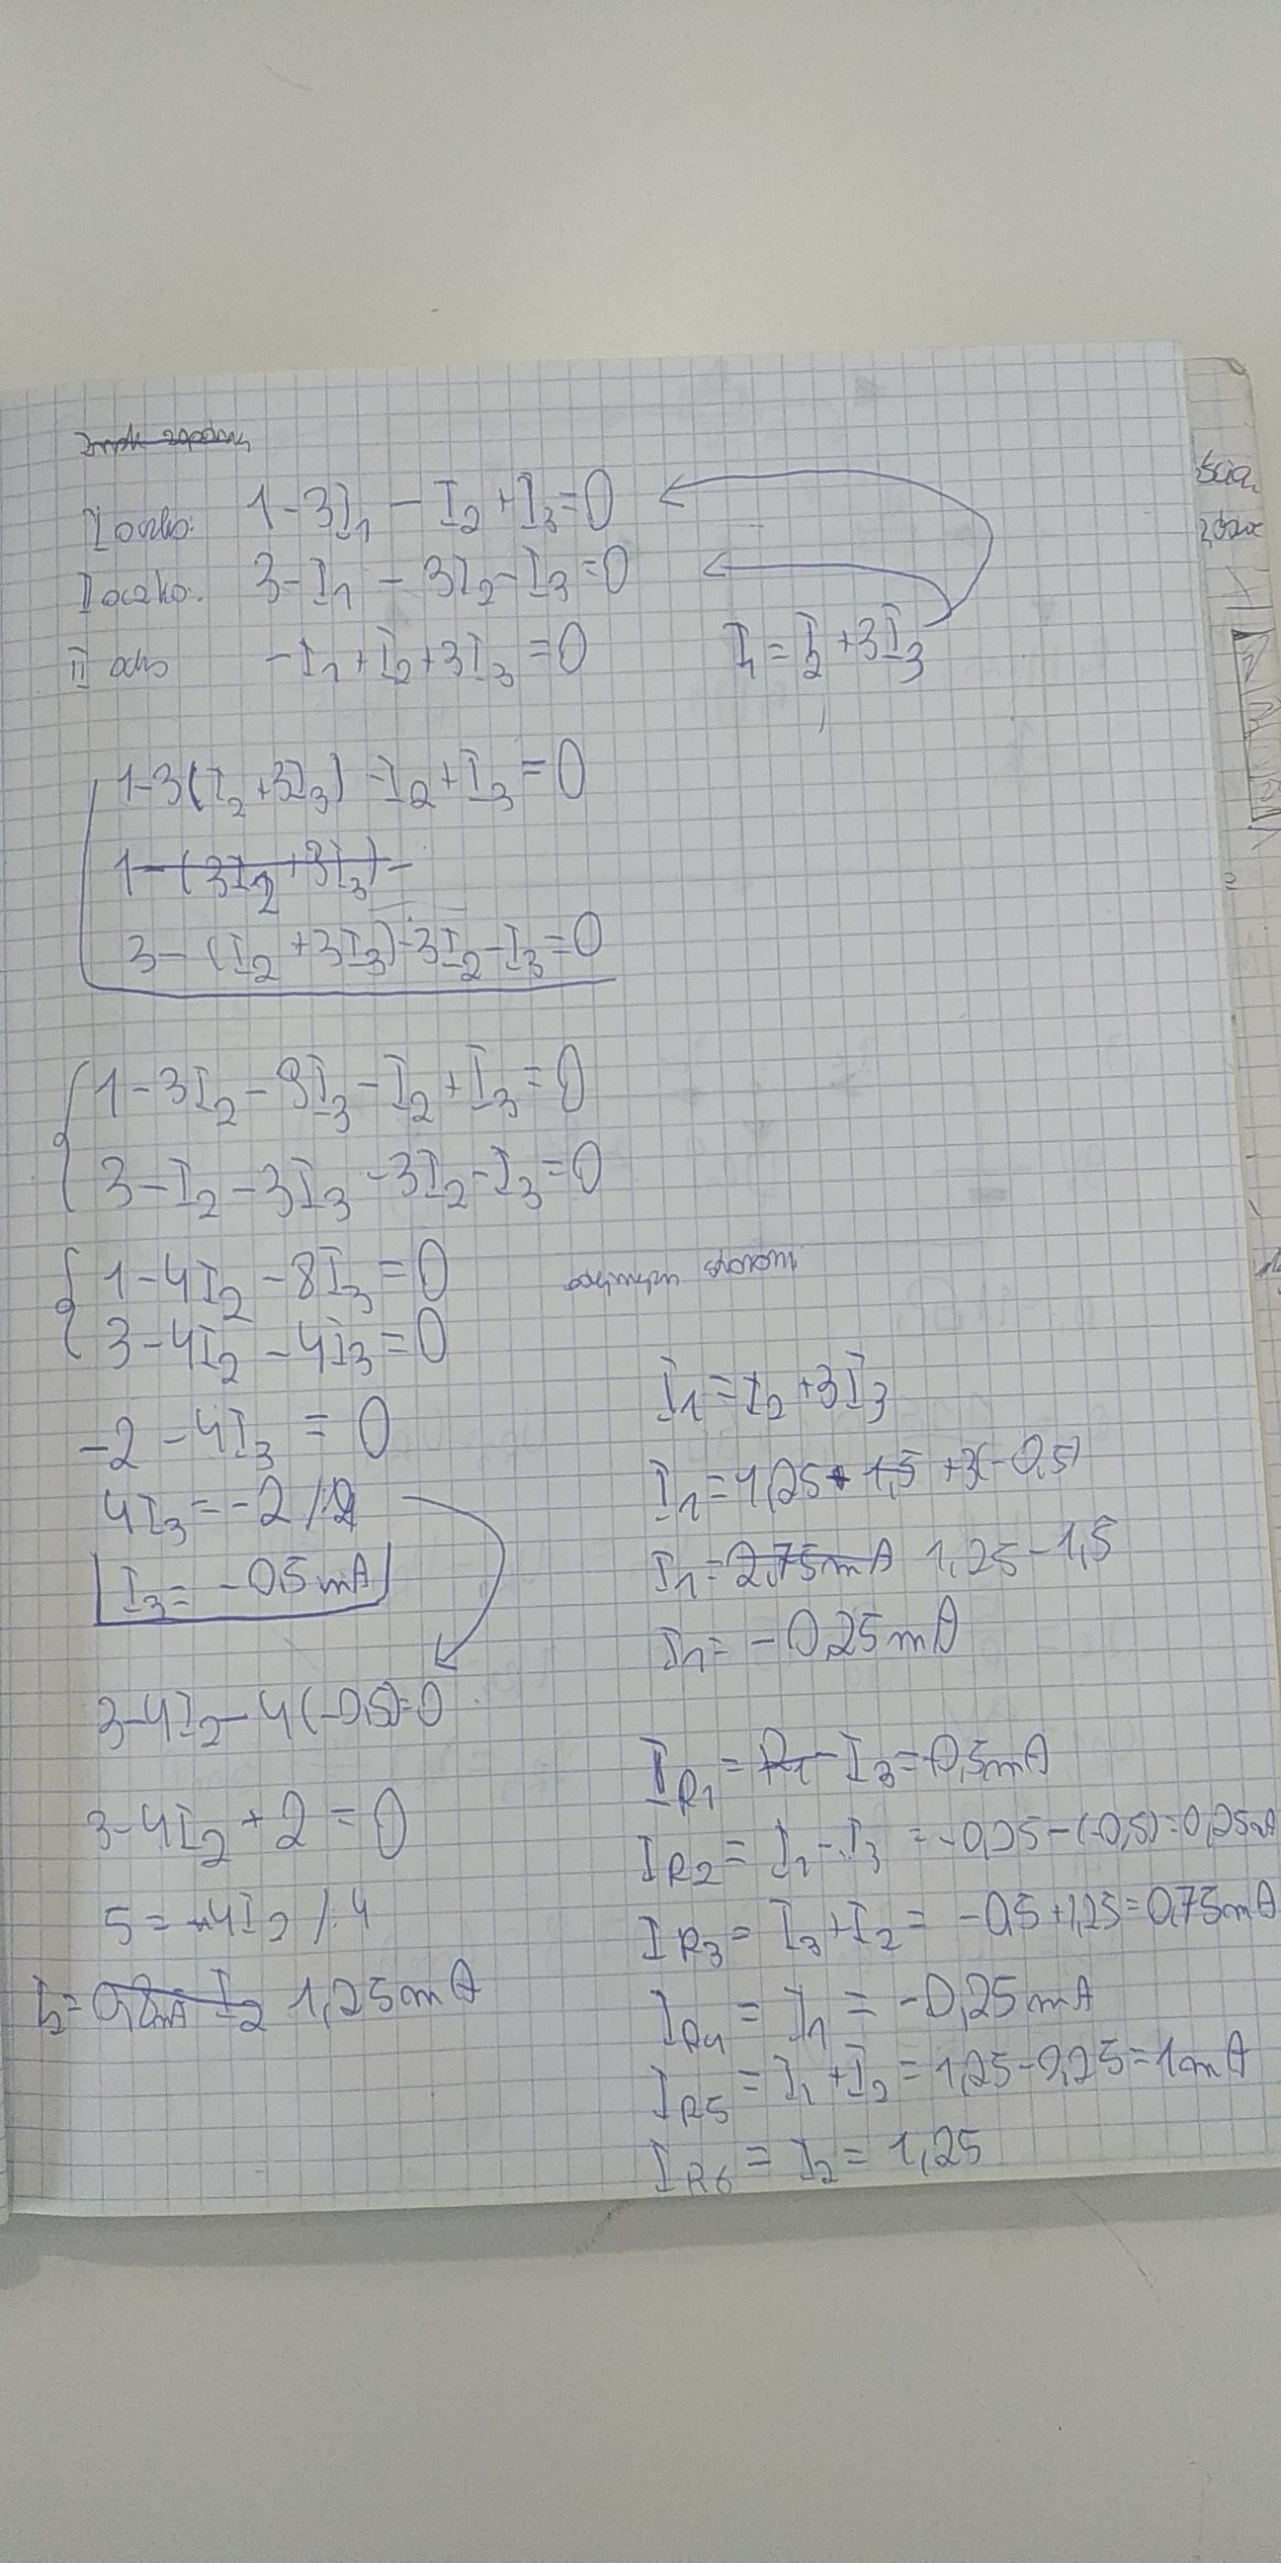 I oczko: 1-3I₁ - I₂ + I₃ = 0
II oczko. 3-I₁ - 3I₂ - I₃ = 0
III oczko -I₁ + I₂ + 3I₃ = 0 I₁ = I₂ + 3I₃
1-3(I₂+3I₃) - I₂ + I₃ = 0
1-(3I₂+3I₃) -
3-(I₂+3I₃) - 3I₂ - I₃ = 0
1-3I₂ - 9I₃ - I₂ + I₃ = 0
3-I₂ - 3I₃ - 3I₂ - I₃ = 0
1-4I₂ - 8I₃ = 0 odejmujemy stronami
3-4I₂ - 4I₃ = 0
-2 - 4I₃ = 0
4I₃ = -2 /:4
I₃ = -0,5mA
3-4I₂ - 4(-0,5) = 0
3-4I₂ + 2 = 0
5 = 4I₂ /:4
I₂ = 0,8mA I₂ 1,25mA
I₁ = I₂ + 3I₃
I₁ = 1,25 + 1,5 + 3(-0,5)
I₁ = 2,75mA 1,25-1,5
I₁ = -0,25mA
I_R1 = R₁ - I₃ = 0,5mA
I_R2 = I₁ - I₃ = -0,25-(-0,5) = 0,25mA
I_R3 = I₃ + I₂ = -0,5 + 1,25 = 0,75mA
I_R4 = I₁ = -0,25mA
I_R5 = I₁ + I₂ = 1,25-0,25 = 1mA
I_R6 = I₂ = 1,25